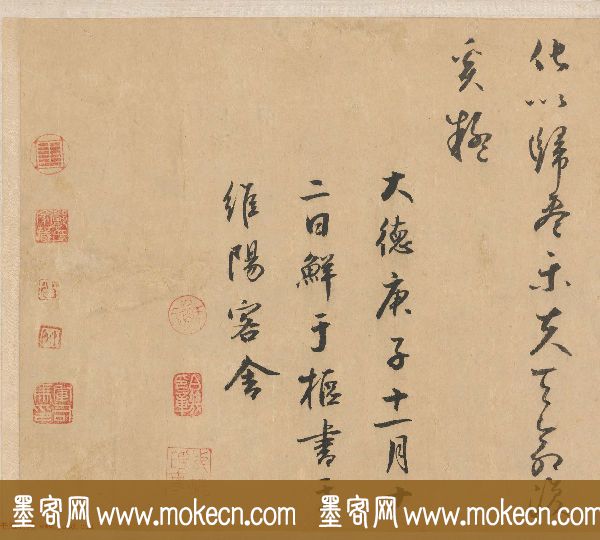 化以歸盡樂夫天命復
奚疑
大德庚子十一月十
二日鮮于樞書于
維陽客舍
墨客网 www.mokecn.com 墨客网 www.mokecn.com